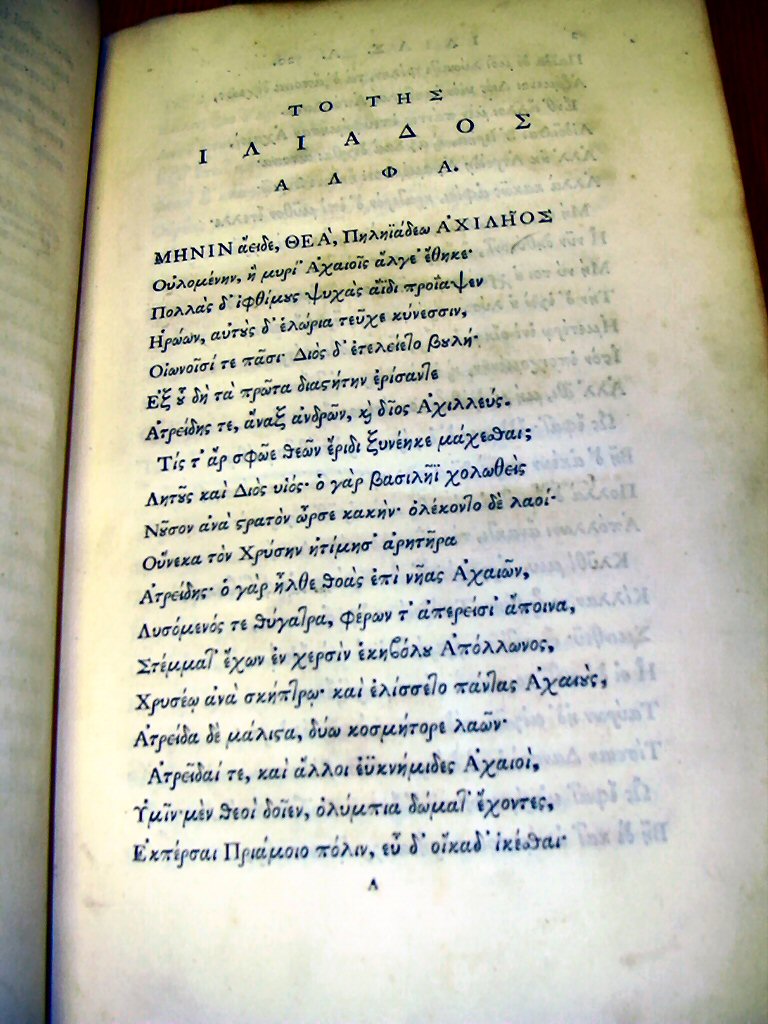 ΤΟ ΤΗΣ
ΙΛΙΑΔΟΣ
ΑΛΦΑ.
ΜΗΝΙΝ ἄειδε, ΘΕΑ', Πηληϊάδεω ἈΧΙΛΗ͂ΟΣ
Οὐλομένην, ἣ μυρί' Ἀχαιοῖς ἄλγε' ἔθηκε·
Πολλὰς δ' ἰφθίμους ψυχὰς ἄϊδι προΐαψεν
Ἡρώων, αὐτοὺς δ' ἑλώρια τεῦχε κύνεσσιν,
Οἰωνοῖσί τε πᾶσι· Διὸς δ' ἐτελείετο βουλή·
Ἐξ οὗ δὴ τὰ πρῶτα διαστήτην ἐρίσαντε
Ἀτρείδης τε, ἄναξ ἀνδρῶν, καὶ δῖος Ἀχιλλεύς.
Τίς τ' ἄρ σφῶε θεῶν ἔριδι ξυνέηκε μάχεσθαι;
Λητοῦς καὶ Διὸς υἱός· ὁ γὰρ βασιλῆϊ χολωθεὶς
Νοῦσον ἀνὰ στρατὸν ὦρσε κακήν· ὀλέκοντο δὲ λαοί·
Οὕνεκα τὸν Χρύσην ἠτίμησ' ἀρητῆρα
Ἀτρείδης· ὁ γὰρ ἦλθε θοὰς ἐπὶ νῆας Ἀχαιῶν,
Λυσόμενός τε θύγατρα, φέρων τ' ἀπερείσι' ἄποινα,
Στέμματ' ἔχων ἐν χερσὶν ἑκηβόλου Ἀπόλλωνος,
Χρυσέῳ ἀνὰ σκήπτρῳ· καὶ ἐλίσσετο πάντας Ἀχαιοὺς,
Ἀτρείδα δὲ μάλιστα, δύω κοσμήτορε λαῶν·
Ἀτρεῖδαί τε, καὶ ἄλλοι ἐϋκνήμιδες Ἀχαιοὶ,
Ὑμῖν μὲν θεοὶ δοῖεν, ὀλύμπια δώματ' ἔχοντες,
Ἐκπέρσαι Πριάμοιο πόλιν, εὖ δ' οἴκαδ' ἱκέσθαι·
Α